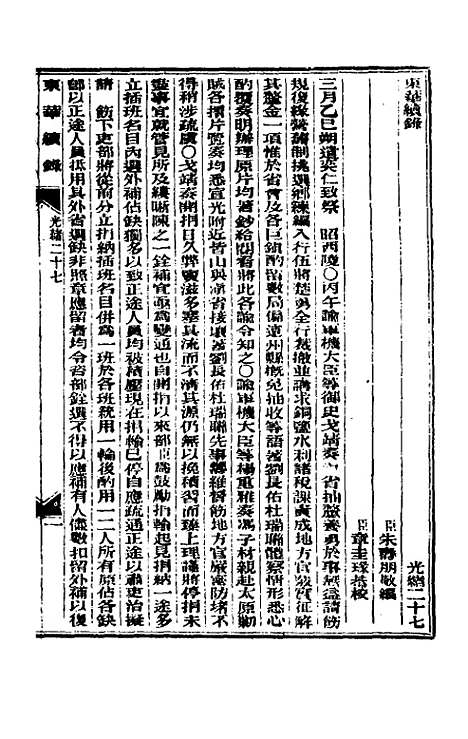 東華續錄
光緒二十七
臣朱壽朋敬編
臣章圭瑑恭校
三月乙巳朔遣奕仁致祭 昭西陵〇丙午諭軍機大臣等御史戈靖奏 省抽釐養勇於事無濟請飭
規復綠營舊制挑選制練編入行伍將楚勇全行裁撤並講求銅鹽水利諸稅課責成地方官覈實征解
其釐金一項惟於省會及各巨鎮酌留數局偏遠州縣概免抽收等語著劉長佑杜瑞聯體察情形悉心
酌覆奏明辦理原片均著鈔給閱看將此各諭令知之〇諭軍機大臣等楊重雅奏馮子材親赴太原勦
賊各摺片覽奏均悉宣光附近皆山與滇省接壤著劉長佑杜瑞聯先事籌維督飭地方官嚴密防堵不
得稍涉疏虞〇戈靖奏開捐日久弊竇滋多塞其流而不清其源仍無以挽積習而臻上理謹將停捐未
盡事宜就管見所及縷晰陳之一銓補宜亟為變通也自開捐以來部臣為鼓勵捐輸起見捐納一途多
立插班名目內選外補佔缺獨多以致正途人員均被積壓現在捐輸已停自應疏通正途以肅吏治擬
請 飭下吏部將從前分立捐納插班名目併為一班於各班統用一輪後酌用一二人所有原佔各缺
卽以正途人員抵用其外省選缺非照章應留者均令咨部銓選不得以應補有人儘數扣留外補以復
東華續錄 光緒二十七